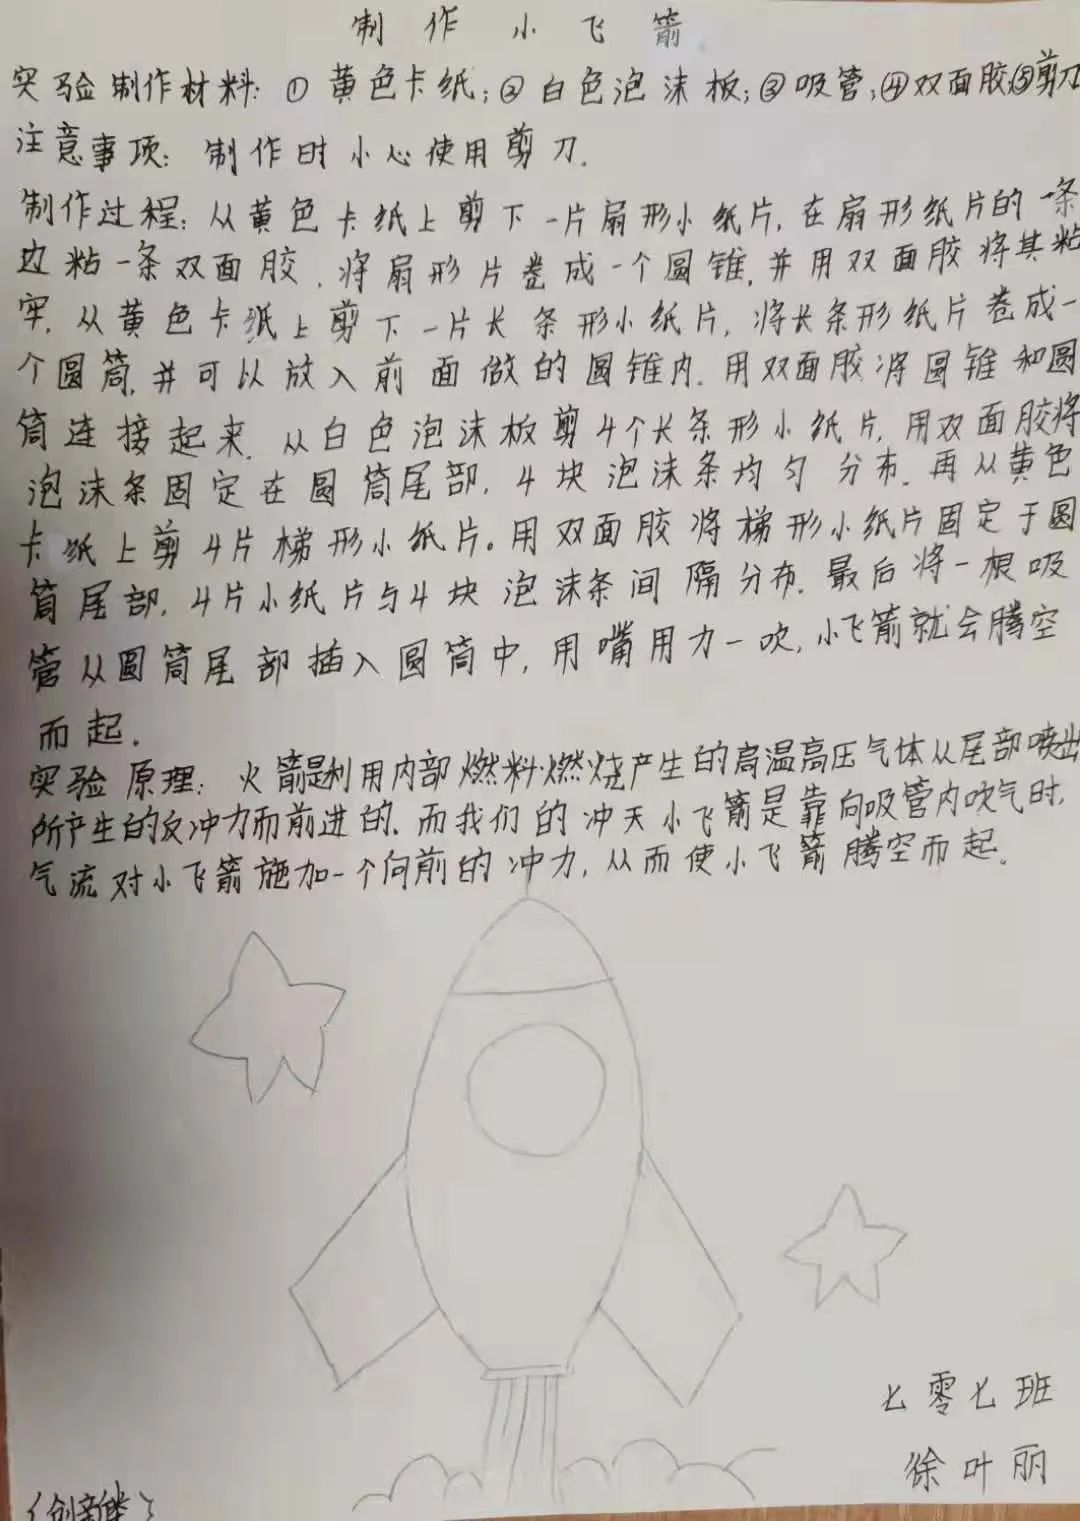 制作小飞箭
实验制作材料：①黄色卡纸；②白色泡沫板；③吸管；④双面胶⑤剪刀
注意事项：制作时小心使用剪刀.
制作过程：从黄色卡纸上剪下一片扇形小纸片，在扇形纸片的一条
边粘一条双面胶，将扇形片卷成一个圆锥，并用双面胶将其粘
牢，从黄色卡纸上剪下一片长条形小纸片，将长条形纸片卷成一
个圆筒，并可以放入前面做的圆锥内.用双面胶将圆锥和圆
筒连接起来.从白色泡沫板剪4个长条形小纸片，用双面胶将
泡沫条固定在圆筒尾部，4块泡沫条均匀分布.再从黄色
卡纸上剪4片梯形小纸片。用双面胶将梯形小纸片固定于圆
筒尾部，4片小纸片与4块泡沫条间隔分布.最后将一根吸
管从圆筒尾部插入圆筒中，用嘴用力一吹，小飞箭就会腾空
而起.
实验原理：火箭是利用内部燃料燃烧产生的高温高压气体从尾部喷出
所产生的反冲力而前进的.而我们的冲天小飞箭是靠向吸管内吹气时，
气流对小飞箭施加一个向前的冲力，从而使小飞箭腾空而起.
七零七班
徐叶丽